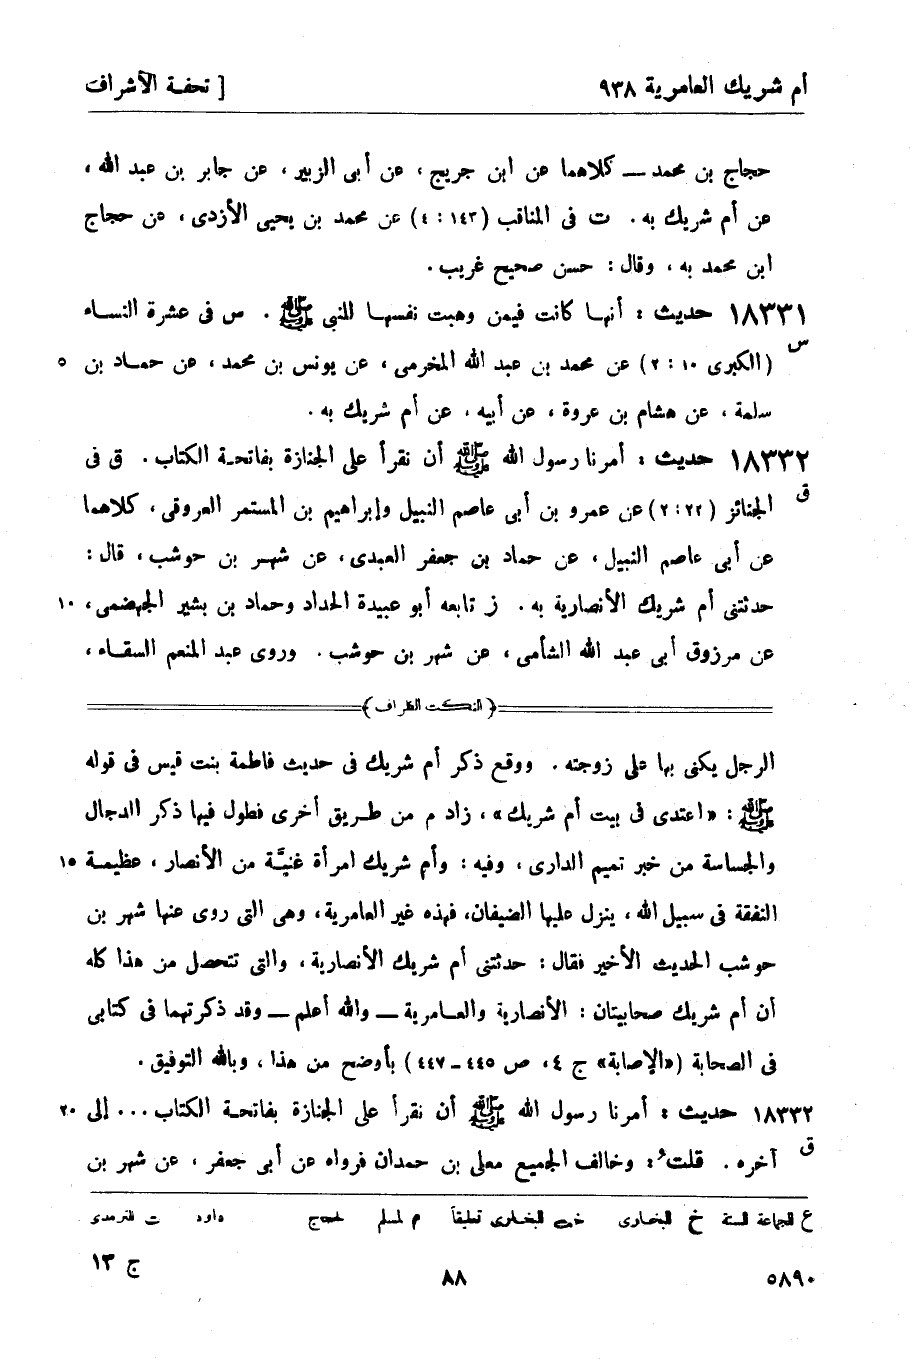 أم شريك العامرية ٩٣٨ [ تحفة الأشراف
حجاج بن محمد ــ كلاهما عن ابن جريج ، عن أبى الزبير ، عن جابر بن عبد الله ،
عن أم شريك به . ت فى المناقب (١٤٣ : ٤) عن محمد بن يحيى الأزدى ، عن حجاج
ابن محمد به ، وقال : حسن صحيح غريب .
١٨٣٣١ حديث : أنها كانت فيمن وهبت نفسها للنبى ﷺ . س فى عشرة النساء
س
(الكبرى ١٠ : ٢) عن محمد بن عبد الله المخرمى ، عن يونس بن محمد ، عن حماد بن ٥
سلمة ، عن هشام بن عروة ، عن أبيه ، عن أم شريك به .
١٨٣٣٢ حديث : أمرنا رسول الله ﷺ أن نقرأ على الجنازة بفاتحة الكتاب . ق فى
ق
الجنائز (٢٢ : ٢) عن عمرو بن أبى عاصم النبيل وإبراهيم بن المستمر العروقى ، كلاهما
عن أبى عاصم النبيل ، عن حماد بن جعفر العبدى ، عن شهر بن حوشب ، قال :
حدثتنى أم شريك الأنصارية به . ز تابعه أبو عبيدة الحداد وحماد بن بشير الجهضمى ، ١٠
عن مرزوق أبى عبد الله الشامى ، عن شهر بن حوشب . وروى عبد المنعم السقاء ،
(النكت الظراف)
الرجل يكنى بها على زوجته . ووقع ذكر أم شريك فى حديث فاطمة بنت قيس فى قوله
ﷺ : «اعتدى فى بيت أم شريك» ، زاد م من طريق أخرى فطول فيها ذكر الدجال
والجساسة من خبر تميم الدارى ، وفيه : وأم شريك امرأة غنيَّة من الأنصار ، عظيمة ١٥
النفقة فى سبيل الله ، ينزل عليها الضيفان ، فهذه غير العامرية ، وهى التى روى عنها شهر بن
حوشب الحديث الأخير فقال : حدثتنى أم شريك الأنصارية ، والتى تتحصل من هذا كله
أن أم شريك صحابيتان : الأنصارية والعامرية ــ والله أعلم ــ وقد ذكرتهما فى كتابى
فى الصحابة («الإصابة» ج ٤ ، ص ٤٤٥ ـ ٤٤٧) بأوضح من هذا ، وبالله التوفيق .
١٨٣٣٢ حديث : أمرنا رسول الله ﷺ أن نقرأ على الجنازة بفاتحة الكتاب ... إلى ٢٠
ق
آخره . قلتُ : وخالف الجميع معلى بن حمدان فرواه عن أبى جعفر ، عن شهر بن
ع الجماعة الستة خ البخارى خت البخارى تعليقاً م لمسلم داود ت للترمذى
٥٨٩٠ ٨٨ ج ١٣